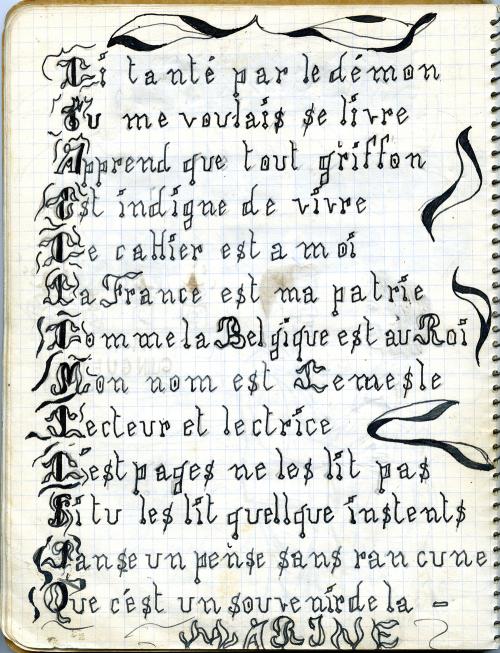 Si tanté par le démon
Tu me voulais se livre
Apprend que tout griffon
Est indigne de vivre
Ce caHier est a moi
La France est ma patrie
Comme la Belgique est au Roi
Mon nom est Lemesle
Lecteur et lectrice
C'est pages ne les lit pas
Si tu les lit quellque instents
Panse un pense sans rancune
Que c'est un souvenir de la -
MARINE